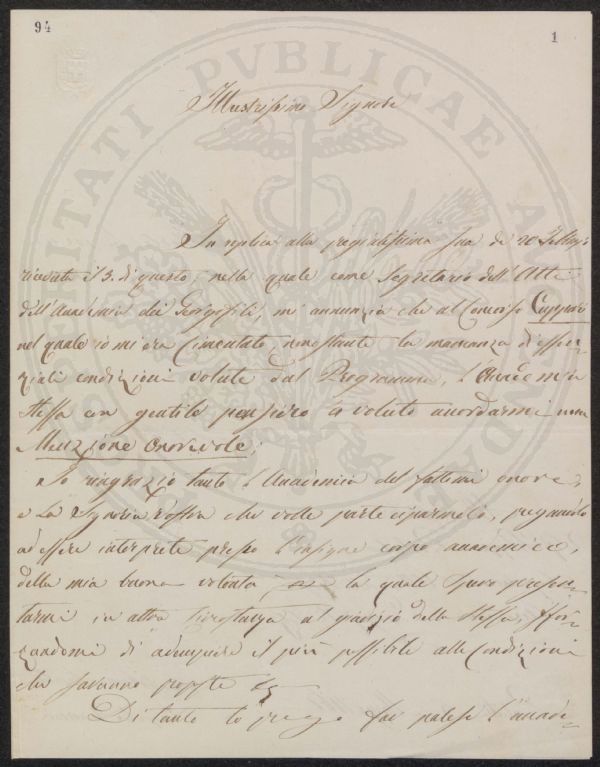 94
1
Illustrissimo Signore
In replica alla pregiatissima Sua de' 20
ricevuta il 3. di questo, nella quale come Segretario dell' Atti
dell' Accademia dei Georgofili, mi annunzia che al Concorso Cuppari
nel quale io mi era Cimentato, nonostante la mancanza d'essen-
ziali condizioni volute dal Programma, l'Accademia
stessa con gentile pensiero a voluto accordarmi una
Menzione onorevole;
Io ringrazio tanto l'Accademia del fattomi onore,
e la Signoria Vostra che volle parteciparmelo, pregandolo
ad essere interprete presso l'insigne corpo accademico,
della mia buona volontà, la quale spero presen-
tarmi in altra circostanza al giudizio della stessa, sfor-
zandomi di adempiere il più possibile alle Condizioni
che saranno proposte
Di tanto lo prego far palese l'accade-
SOCIETATI PVBLICAE AVGENDAE